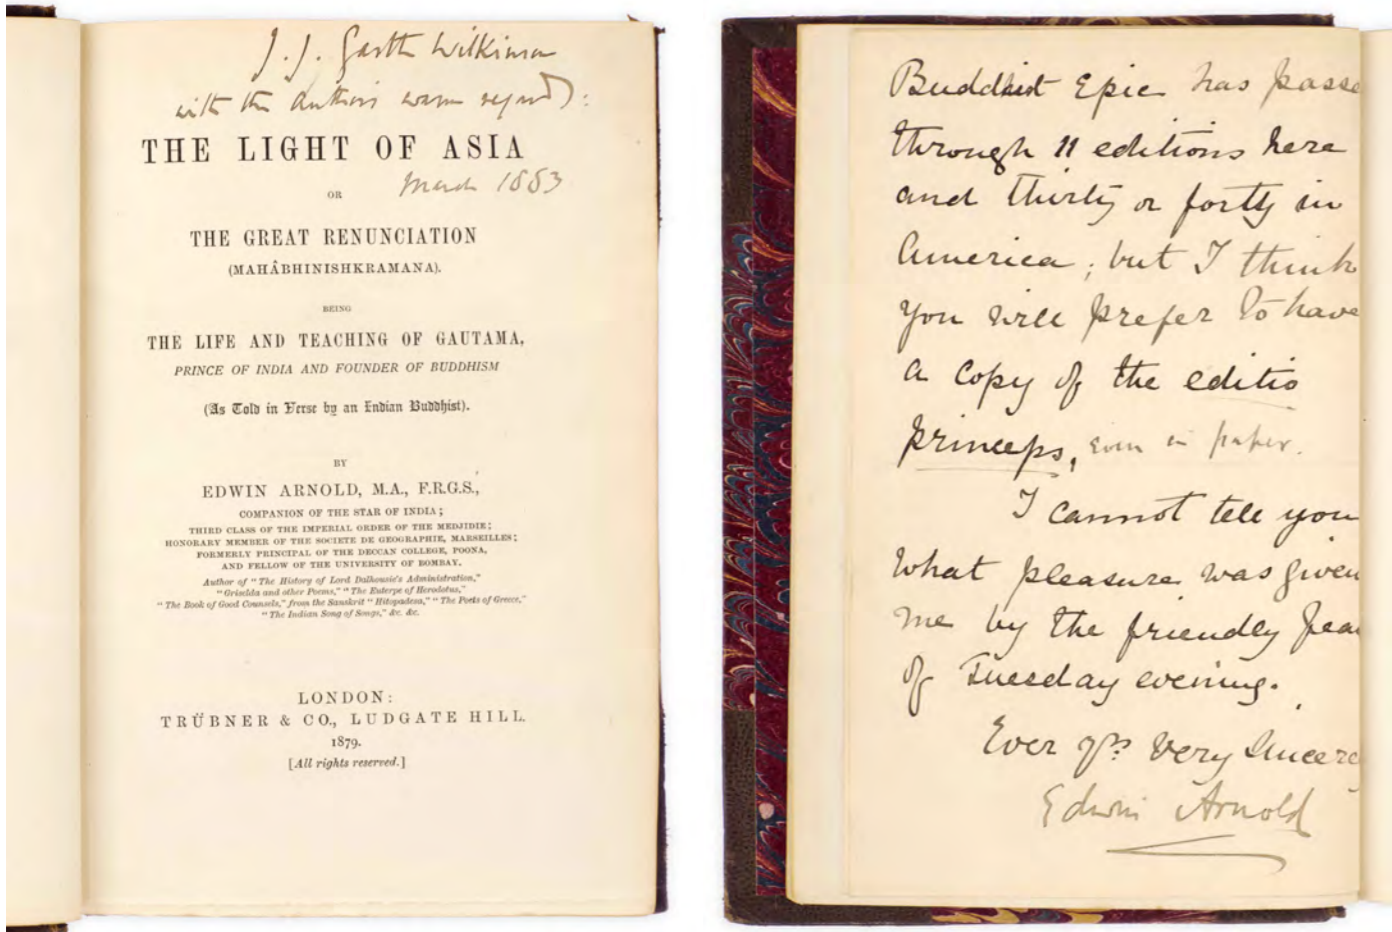 J. J. Garth Wilkinson
with the Author's warm regards:
THE LIGHT OF ASIA
OR
March 1883
THE GREAT RENUNCIATION
(MAHÂBHINISHKRAMANA).
BEING
THE LIFE AND TEACHING OF GAUTAMA,
PRINCE OF INDIA AND FOUNDER OF BUDDHISM
(As Told in Verse by an Indian Buddhist).
BY
EDWIN ARNOLD, M.A., F.R.G.S.,
COMPANION OF THE STAR OF INDIA;
THIRD CLASS OF THE IMPERIAL ORDER OF THE MEDJIDIE;
HONORARY MEMBER OF THE SOCIETE DE GEOGRAPHIE, MARSEILLES;
FORMERLY PRINCIPAL OF THE DECCAN COLLEGE, POONA,
AND FELLOW OF THE UNIVERSITY OF BOMBAY.
Author of "The History of Lord Dalhousie's Administration,"
"Griselda and other Poems," "The Euterpe of Herodotus,"
"The Book of Good Counsels," from the Sanskrit "Hitopadesa," "The Poets of Greece,"
"The Indian Song of Songs," &c. &c.
LONDON:
TRÜBNER & CO., LUDGATE HILL.
1879.
[All rights reserved.]
Buddhist Epic has passe
through 11 editions here
and thirty or forty in
America; but I think
you will prefer to have
a copy of the editio
princeps, even in paper.
I cannot tell you
what pleasure was given
me by the friendly
of Tuesday evening.
Ever yrs very Sincere
Edwin Arnold